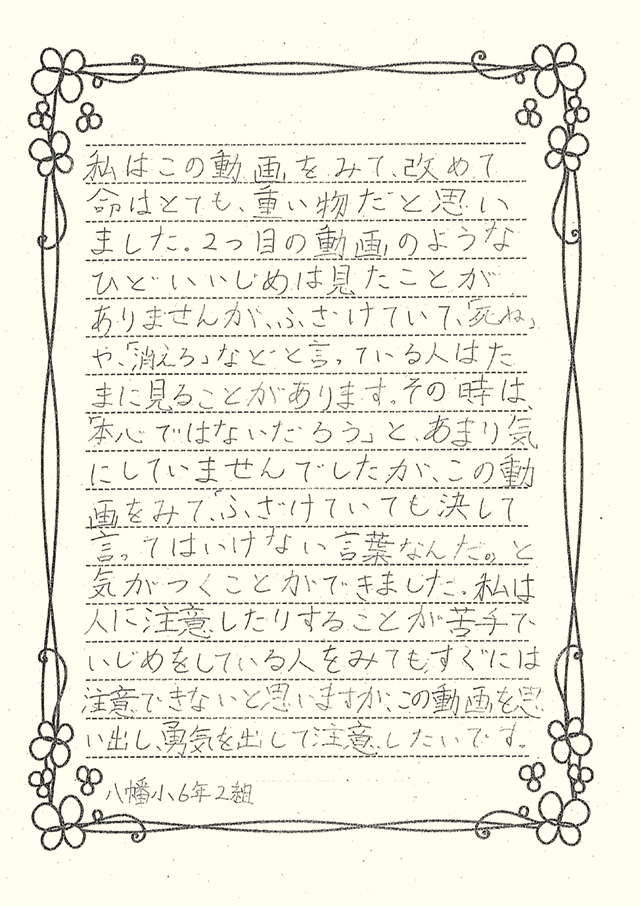 私はこの動画をみて、改めて
命はとても、重い物だと思い
ました。2つ目の動画のような
ひどいいじめは見たことが
ありませんが、ふざけていて、「死ね」
や、「消えろ」などと言っている人はた
まに見ることがあります。その時は、
「本心ではないだろう」と、あまり気
にしていませんでしたが、この動
画をみて、「ふざけていても決して
言ってはいけない言葉なんだ。」と
気がつくことができました。私は
人に注意したりすることが苦手で
いじめをしている人をみてもすぐには
注意できないと思いますが、この動画を思
い出し、勇気を出して注意したいです。
八幡小6年2組